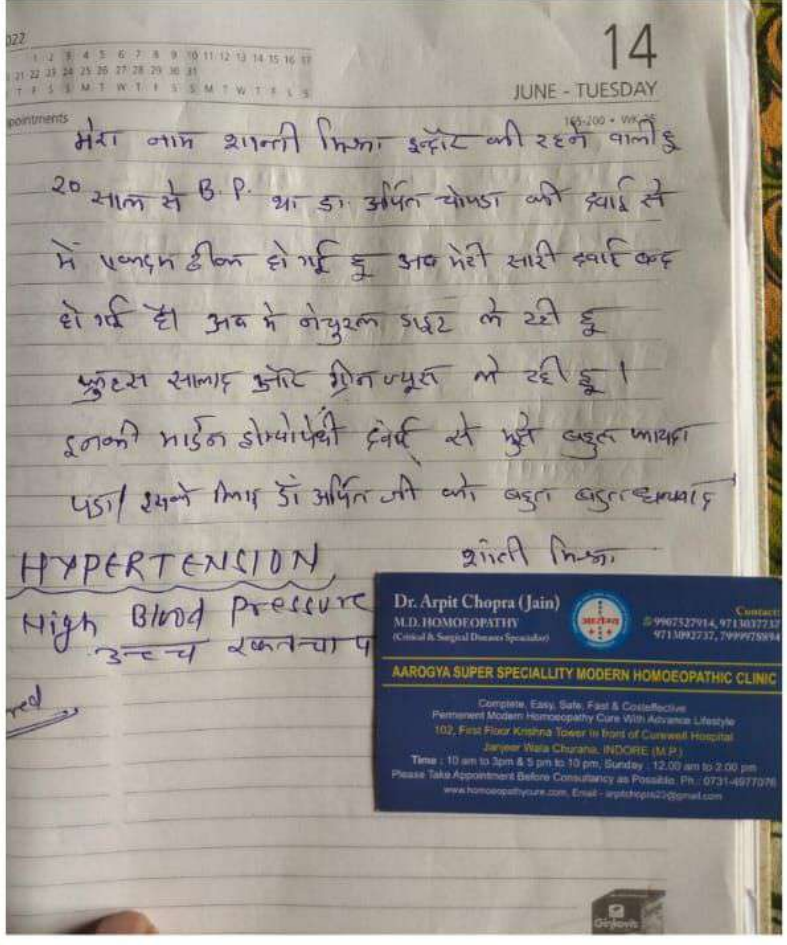 2022
1 2 3 4 5 6 7 8 9 10 11 12 13 14 15 16 17
21 22 23 24 25 26 27 28 29 30 31
T F S S M T W T F S S M T W T F S S
14
JUNE - TUESDAY
appointments
165-200 • WK
मेरा नाम शान्ती मिश्रा इन्दौर की रहने वाली हू
20 साल से B.P. था डा. अर्पित चोपडा की दवाई से
में एकदम ठीक हो गई हू अब मेरी सारी दवाई बन्द
हो गई है। अब मे नेचुरल डाइट ले रही हू
फ्रुटस सालाद और ग्रीन ज्यूस ले रही हू।
इनकी मार्डन होम्योपेथी दवाई से मुझे बहुत फायदा
पडा/ इसके लिए डॉ अर्पित जी को बहुत बहुत धन्यवाद
शांती मिश्रा
HYPERTENSION
High Blood Pressure
उच्च रक्तचाप
red
Dr. Arpit Chopra (Jain)
M.D. HOMOEOPATHY
(Critical & Surgical Diseases Specialist)
आरोग्य
Contact:
9907527914, 9713037737
9713092737, 7999975894
AAROGYA SUPER SPECIALLITY MODERN HOMOEOPATHIC CLINIC
Complete, Easy, Safe, Fast & Costeffective
Permenent Modern Homoeopathy Cure With Advance Lifestyle
102, First Floor Krishna Tower In front of Curewell Hospital
Janjeer Wala Churaha, INDORE (M.P.)
Time : 10 am to 3pm & 5 pm to 10 pm, Sunday : 12.00 am to 2.00 pm
Please Take Appointment Before Consultancy as Possible. Ph.: 0731-4977076
www.homoeopathycure.com, Email - arpitchopra23@gmail.com
Ginkovis